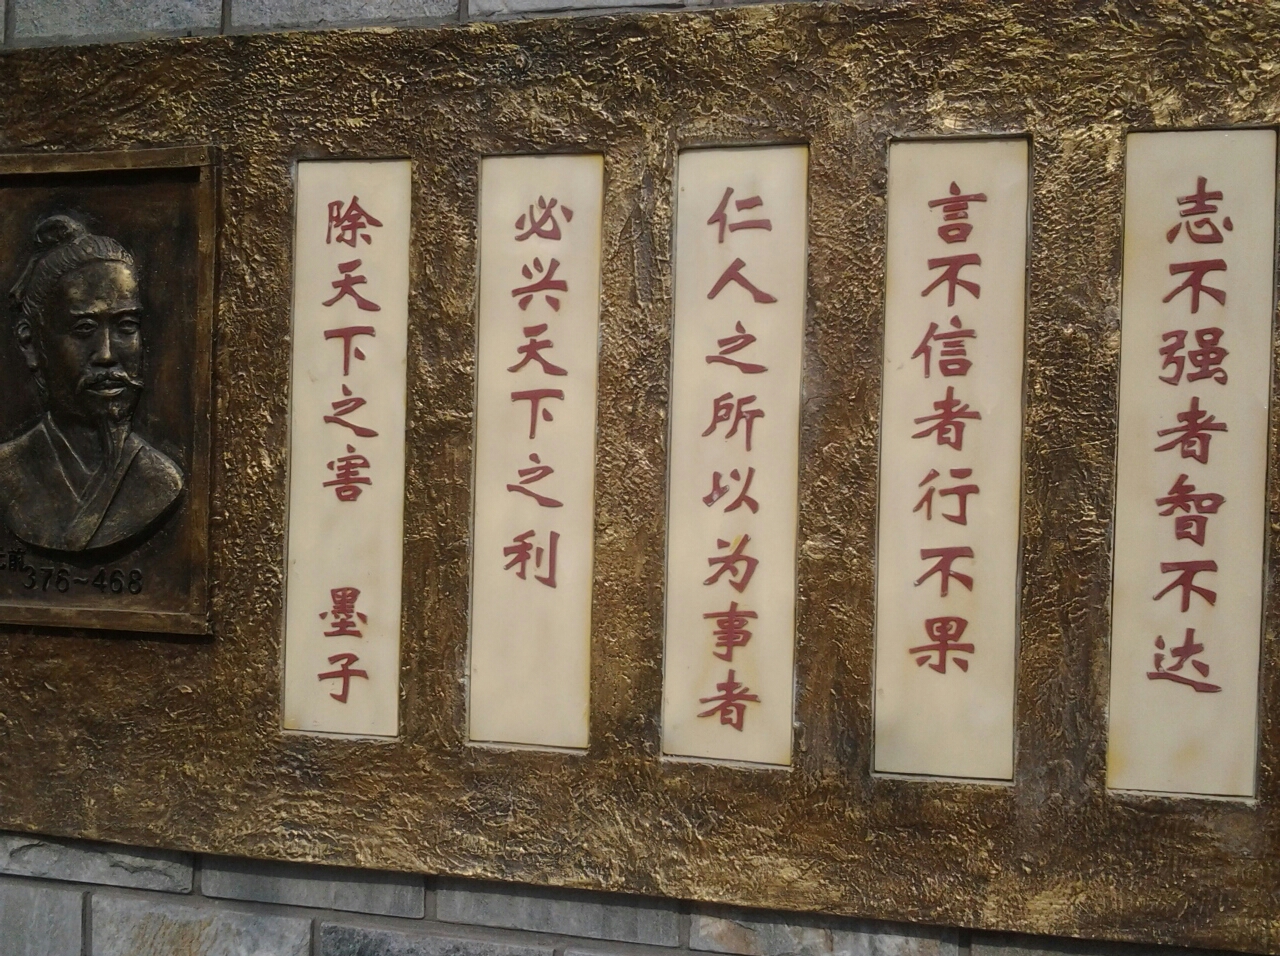 志不强者智不达
言不信者行不果
仁人之所以为事者
必兴天下之利
除天下之害 墨子
元前
376~468